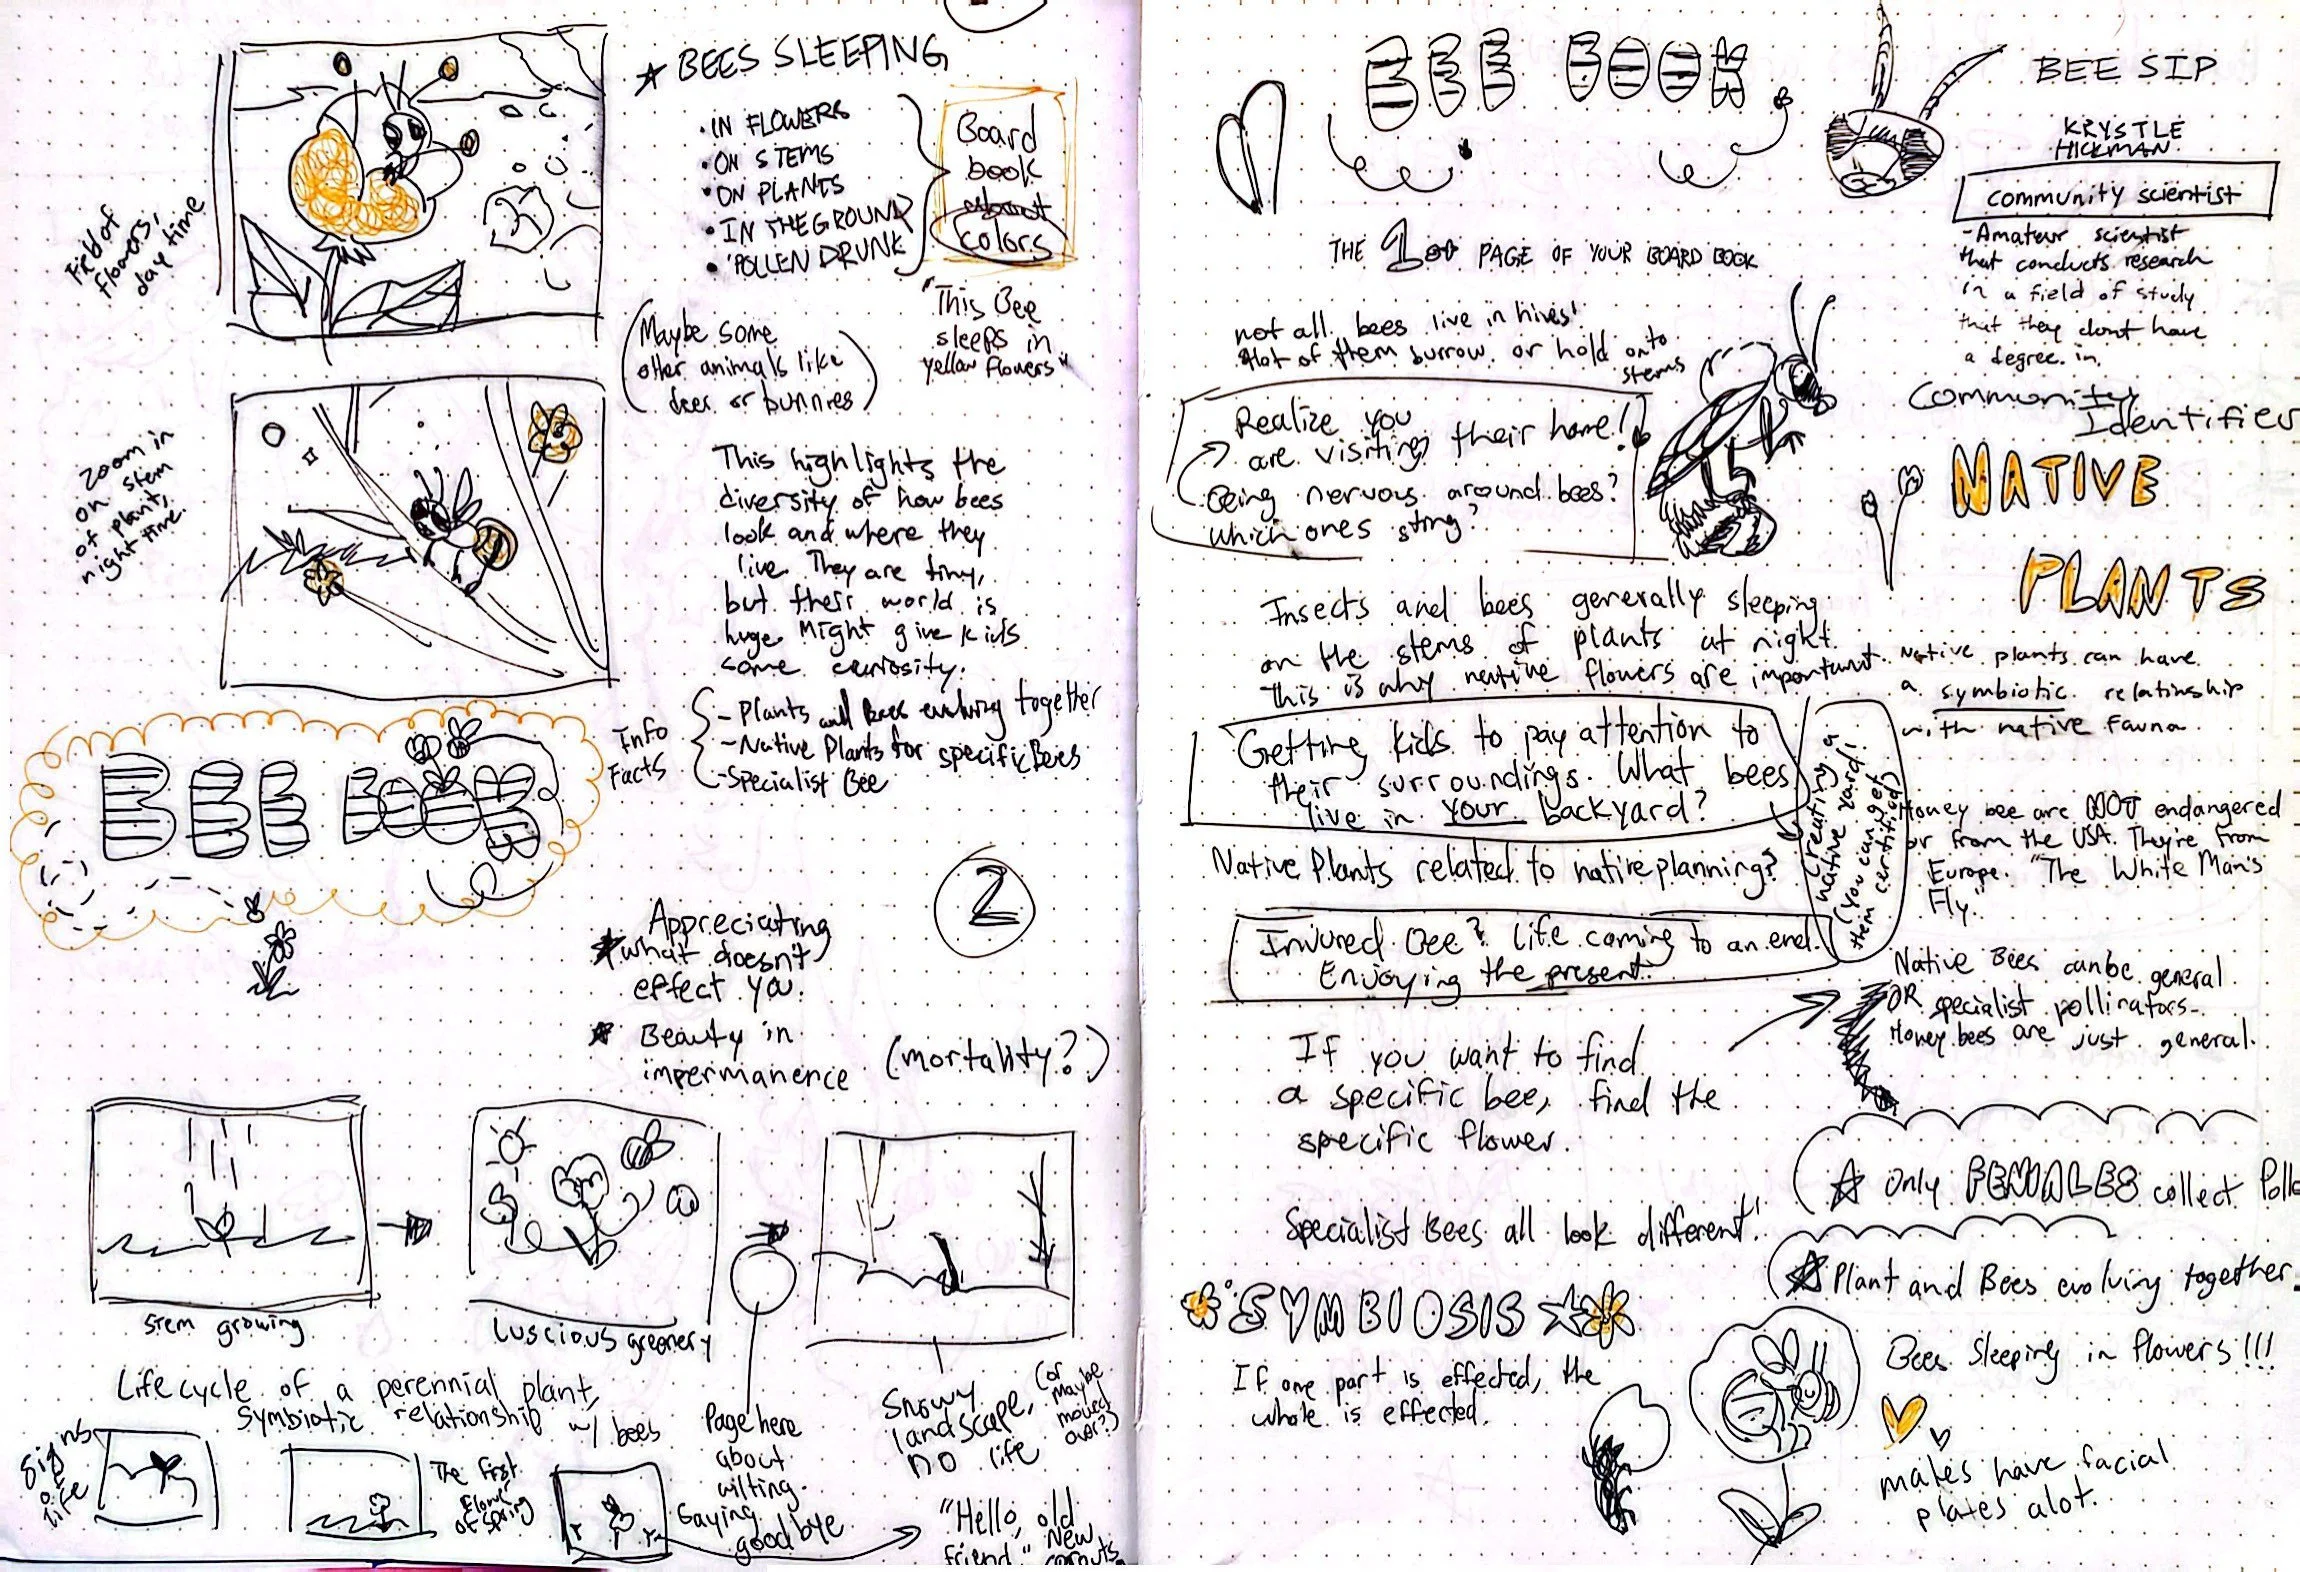 ★ BEES SLEEPING
• IN FLOWERS
• ON STEMS
• ON PLANTS
• IN THE GROUND
• "POLLEN DRUNK"
Board
book
about
colors
"This Bee
sleeps in
yellow flowers"
Field of
flowers,
day time
(Maybe some
other animals like
deer or bunnies)
Zoom in
on stem
of plant,
night time.
This highlights the
diversity of how bees
look and where they
live. They are tiny,
but their world is
huge. Might give kids
some curiosity.
Info
Facts
- Plants and Bees evolving together
- Native Plants for specific Bees
- Specialist Bee
BEE BOOK
2
★ Appreciating
what doesn't
effect you.
★ Beauty in
impermanence
(mortality?)
Stem growing
Luscious greenery
Life cycle of a perennial plant,
symbiotic relationship w/ bees
Signs
of
life
The first
flower
of spring
Page here
about
wilting.
Saying
goodbye
Snowy
landscape,
no life
(or
maybe
moved
over?)
"Hello, old
friend."
New
sprouts
BEE BOOK
THE 1st PAGE OF YOUR BOARD BOOK
not all bees live in hives!
Alot of them burrow or hold onto
stems
Realize you
are visiting their home!
Being nervous around bees?
which ones sting?
Insects and bees generally sleeping
on the stems of plants at night.
This is why native flowers are important.
Getting kids to pay attention to
their surroundings. What bees
live in your backyard?
Creating a
native yard!
(You can get
them certified)
Native Plants related to native planning?
Injured Bee? Life coming to an end.
Enjoying the present.
If you want to find
a specific bee, find the
specific flower.
Specialist Bees all look different!
SYMBIOSIS
If one part is effected, the
whole is effected.
BEE SIP
KRYSTLE
HICKMAN
community scientist
- Amateur scientist
that conducts research
in a field of study
that they dont have
a degree in.
Community
Identifier
NATIVE
PLANTS
Native plants can have
a symbiotic relatinship
with native fauna.
Honey bee are NOT endangered
or from the USA. They're from
Europe. "The White Man's
Fly."
Native Bees can be general
OR specialist pollinators.
Honey bees are just general.
☆ Only FEMALES collect Polle
★ Plant and Bees evolving together.
Bees Sleeping in flowers!!!
males have facial
plates alot.